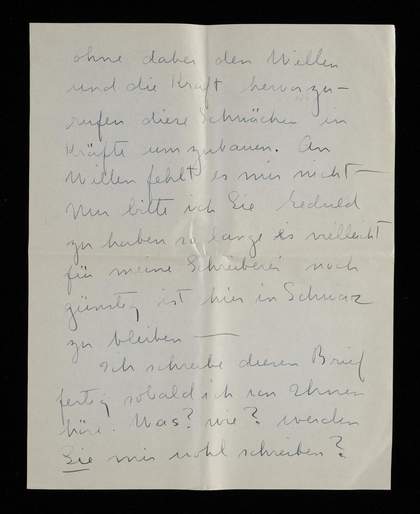 ohne dabei den Willen
und die Kraft hervorzu-
rufen diese Schwächen in
Kräfte umzubauen. An
Willen fehlt es mir nicht —
Nur bitte ich Sie Geduld
zu haben so lange es vielleicht
für meine Schreiberei noch
günstig ist hier in Schwaz
zu bleiben —
Ich schreibe diesen Brief
fertig sobald ich von Ihnen
höre. Was? wie? werden
Sie mir wohl schreiben?